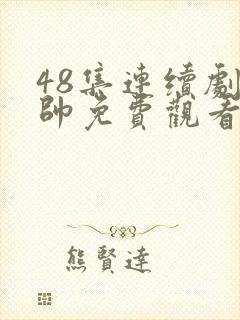 48集連續劇
帥免費觀看
熊賢達